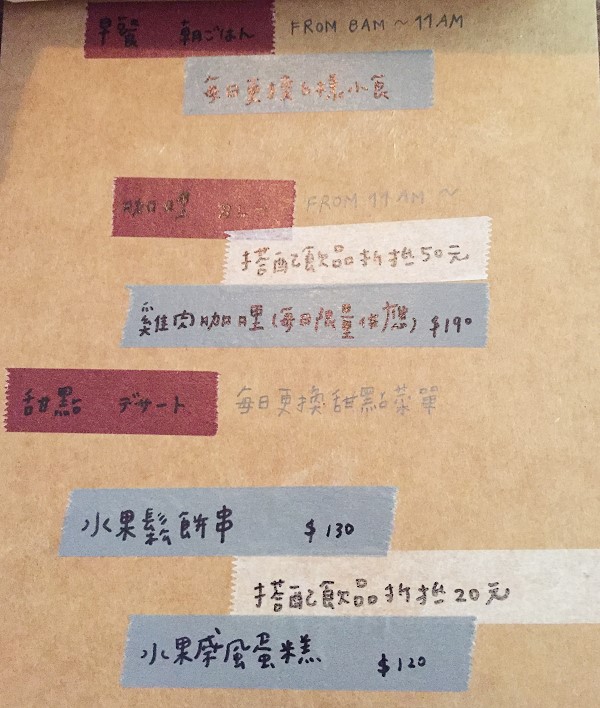 早餐 朝ごはん FROM 8AM ~ 11AM
每日更換各樣小食
咖哩 カレー FROM 11AM ~
搭配飲品折抵50元
雞肉咖哩(每日限量供應) $190
甜點 デザート 每日更換甜點菜單
水果鬆餅串 $130
搭配飲品折抵20元
水果戚風蛋糕 $120